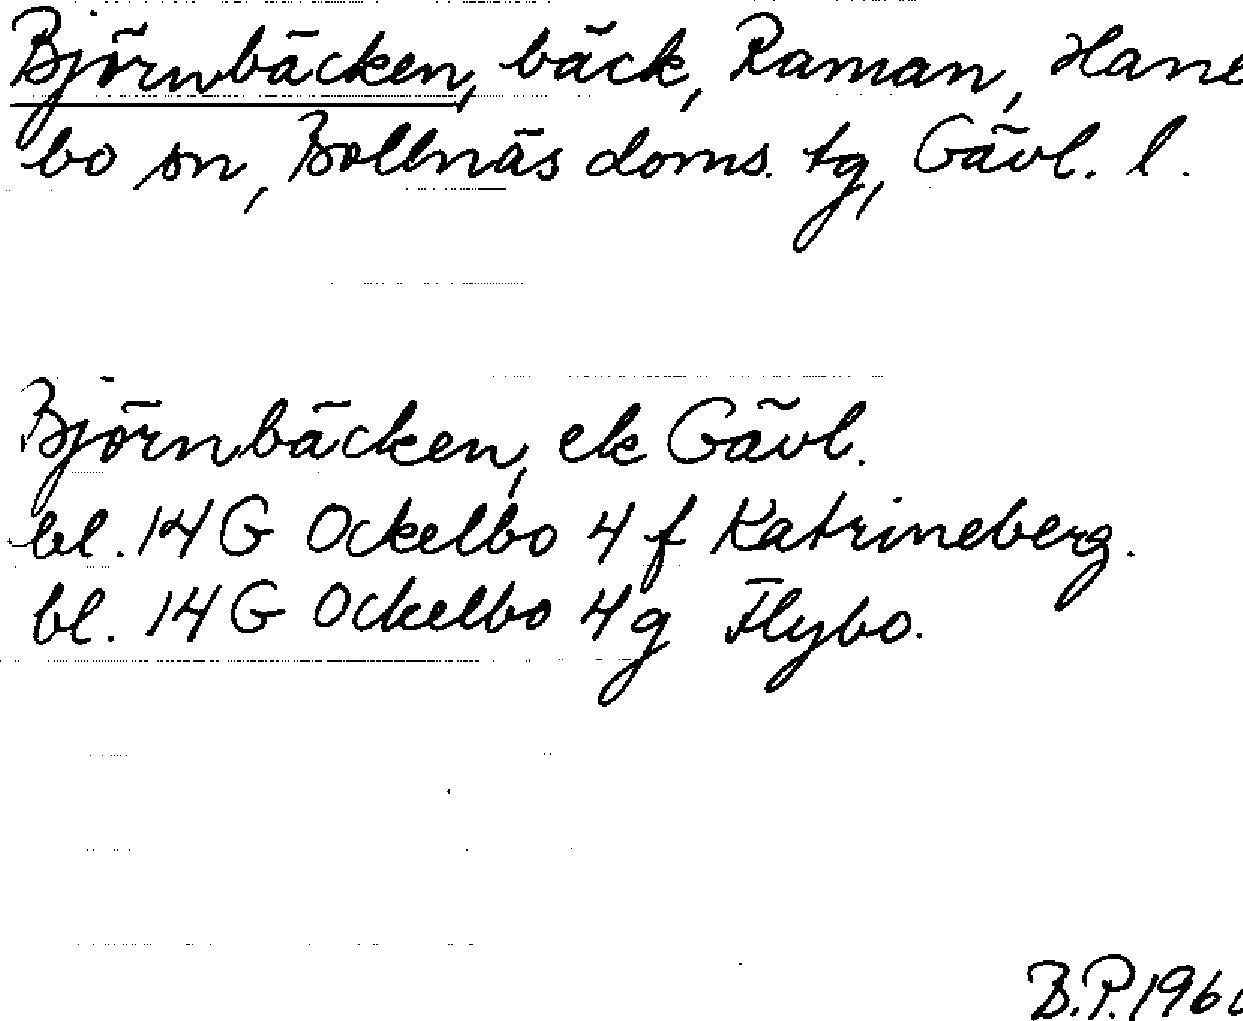 Björnbäcken, bäck, Raman, Hane
bo sn, Bollnäs doms. tg, Gävl. l.
Björnbäcken, ek Gävl.
bl. 14 G Ockelbo 4 f Katrineberg.
bl. 14 G Ockelbo 4 g Flybo.
B.P. 196